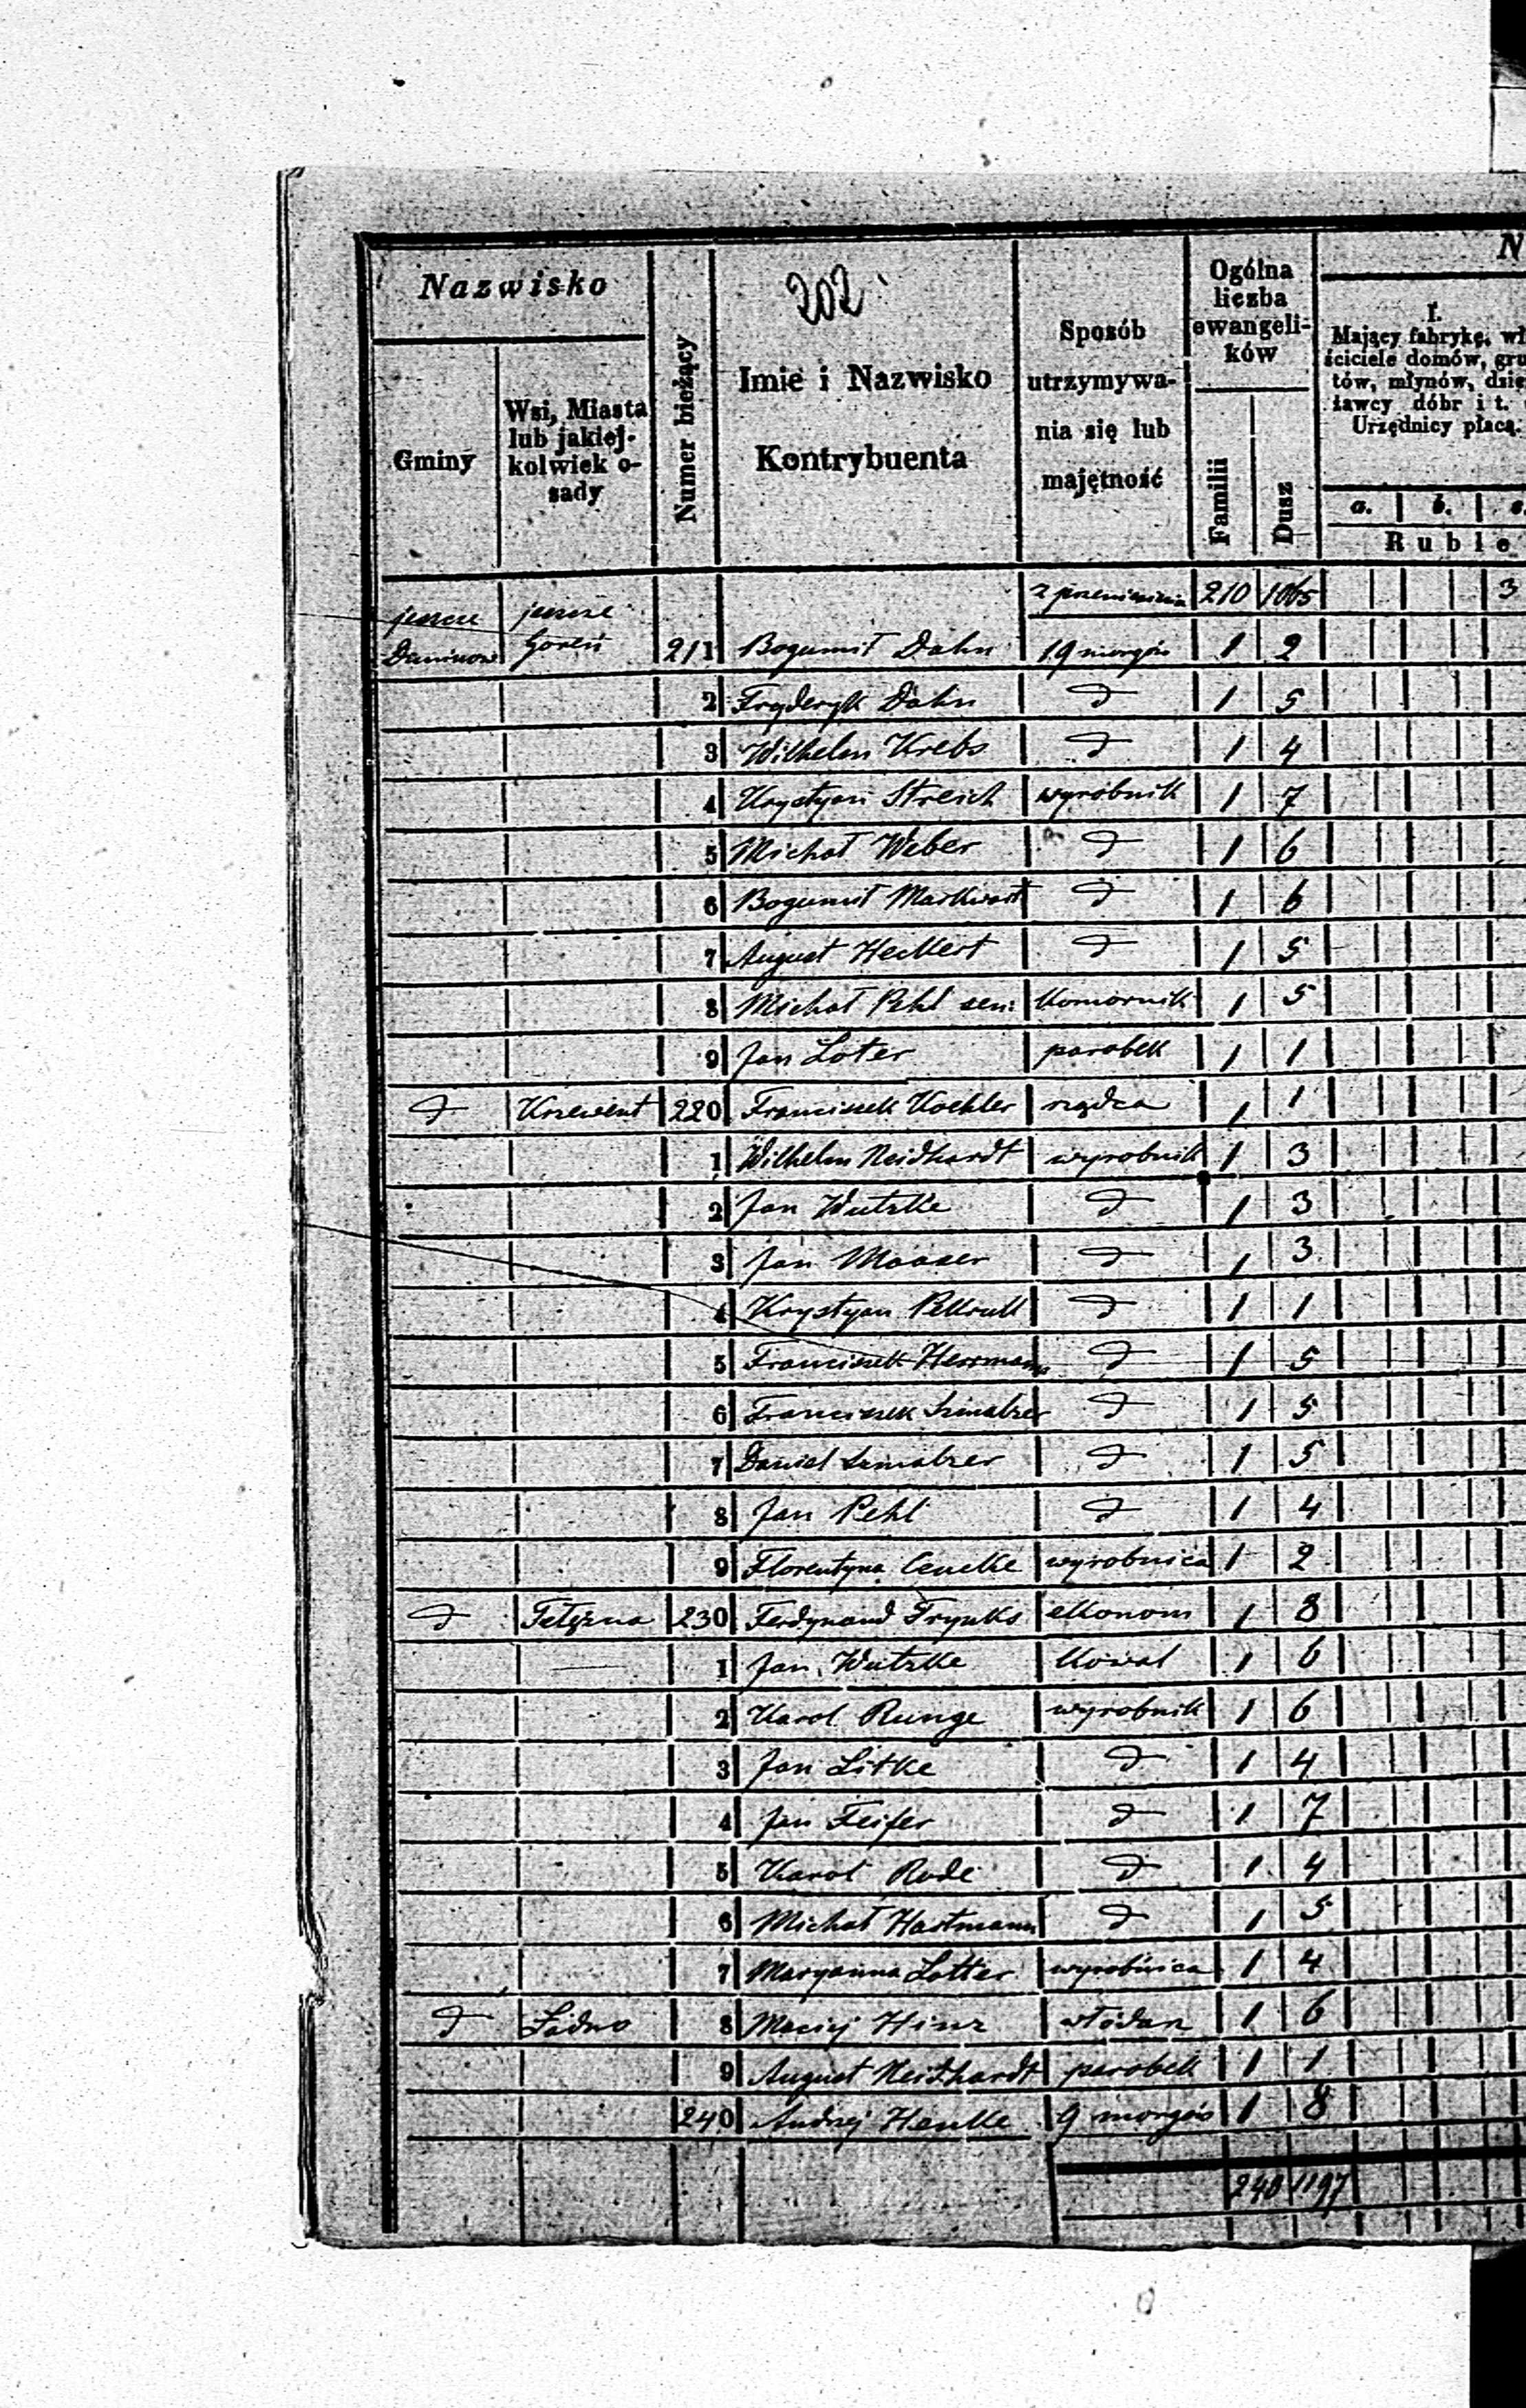 Nazwisko
Gminy
Wsi, Miasta
lub jakiej-
kolwiek o-
sady
Numer bieżący
202
Imie i Nazwisko
Kontrybuenta
Sposób
utrzymywa-
nia się lub
majętność
Ogólna
liczba
ewangeli-
ków
Familii
Dusz
N
I.
Mający fabrykę, wł
ściciele domów, gru
tów, młynów, dzie
ławcy dóbr i t.
Urzędnicy płacą.
a. b. c.
Ruble
z przeniesienia 210 1065 3
jeszcze jeszcze
Duninow Goreń 211 Bogumił Dahn 19 morgów 1 2
2 Fryderyk Dahn d 1 5
3 Wilhelm Krebs d 1 4
4 Krystyan Streich wyrobnik 1 7
5 Michał Weber d 1 6
6 Bogumił Markwart d 1 6
7 August Heckert d 1 5
8 Michał Pehl sen: komornik 1 5
9 Jan Loter parobek 1 1
d Krzewent 220 Franciszek Koehler rządca 1 1
1 Wilhelm Neidhardt wyrobnik 1 3
2 Jan Wutzke d 1 3
3 Jan Maaser d 1 3
4 Krystyan Pekrull d 1 1
5 Franciszek Herrmann d 1 5
6 Franciszek Szmalzer d 1 5
7 Daniel Szmalzer d 1 5
8 Jan Pehl d 1 4
9 Florentyna wyrobnica 1 2
d Telężna 230 Ferdynand Frynks ekonom 1 8
1 Jan Wutzke kowal 1 6
2 Karol Runge wyrobnik 1 6
3 Jan Litke d 1 4
4 Jan Feifer d 1 7
5 Karol Rode d 1 4
6 Michał Hartmann d 1 5
7 Maryanna Lotter wyrobnica 1 4
d Ładno 8 Maciej Hinz włodarz 1 6
9 August Neidhardt parobek 1 1
240 Andrzej Henke 9 morgów 1 8
240 1197